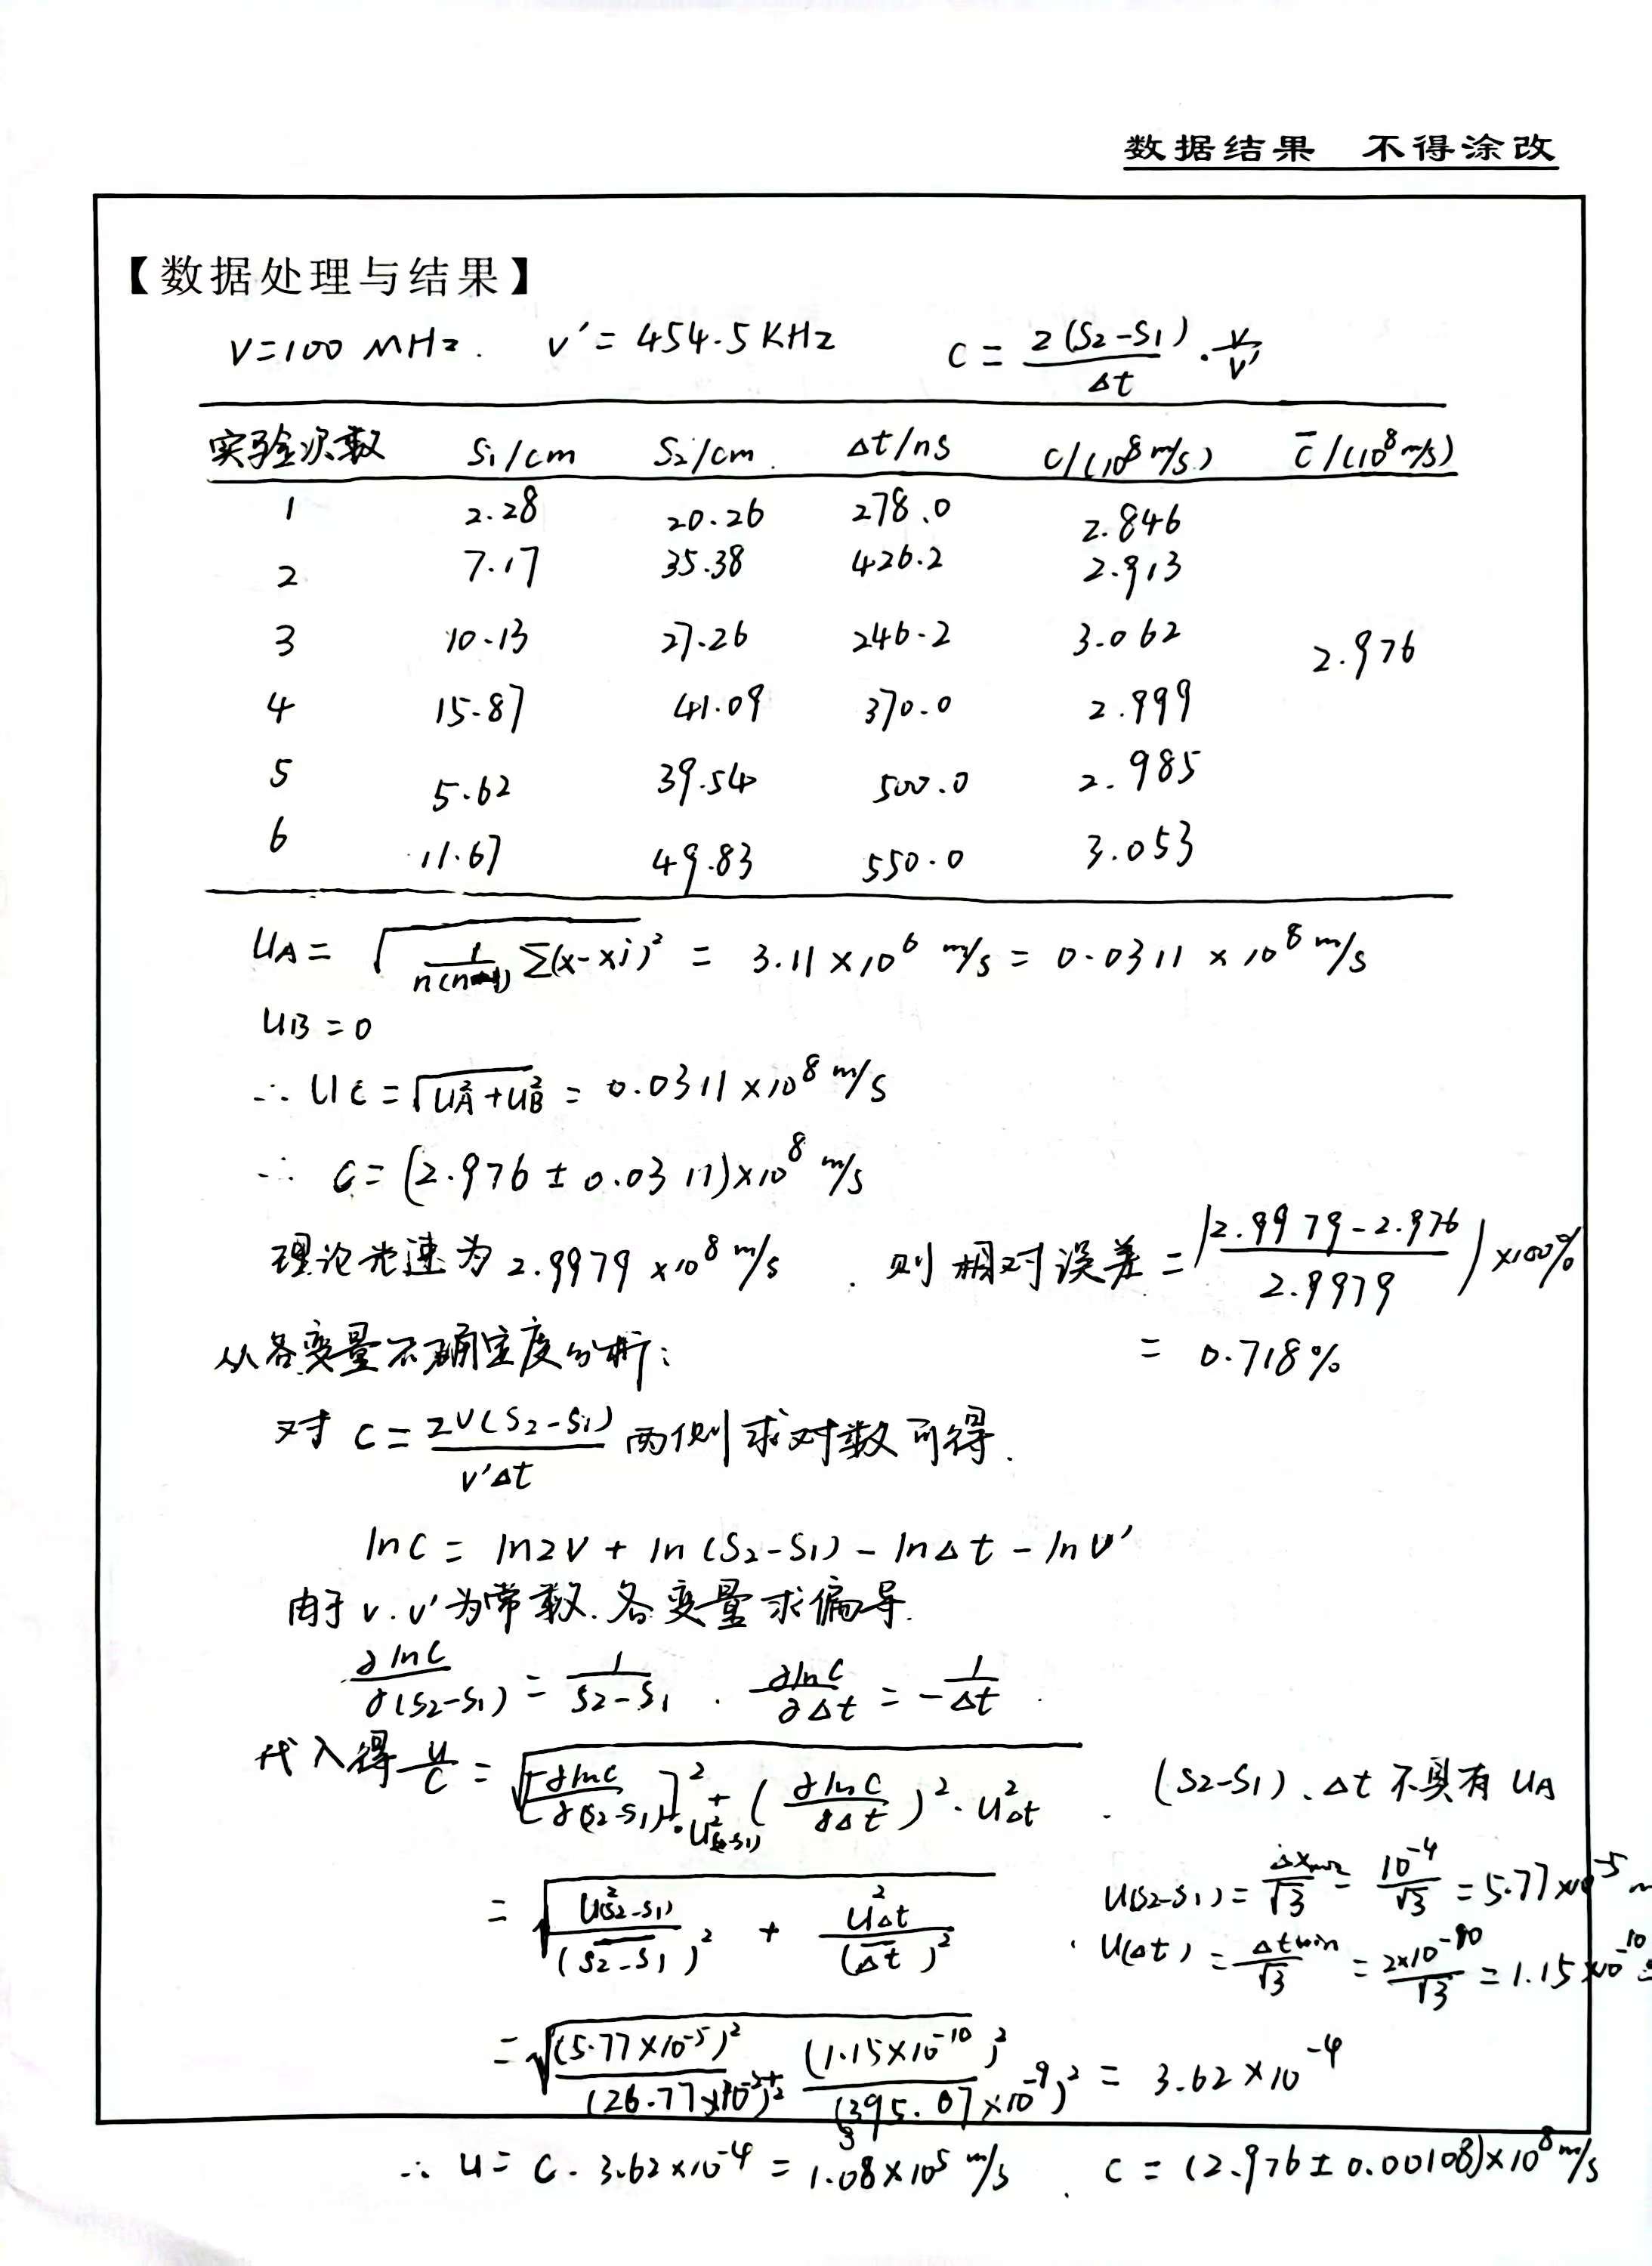 数据结果 不得涂改
【数据处理与结果】
V=100 MHz. V'=454.5KHz C = 2(S2-S1)/Δt · V/V'
实验次数 S1/cm S2/cm Δt/ns C/(10^8 m/s) C̄/(10^8 m/s)
1 2.28 20.26 278.0 2.846
2 7.17 35.38 426.2 2.913
3 10.13 27.26 246.2 3.062 2.976
4 15.87 41.09 370.0 2.999
5 5.62 39.54 500.0 2.985
6 11.67 49.83 550.0 3.053
UA = √(1/(n(n-1)) Σ(x-xi)²) = 3.11×10^6 m/s = 0.0311×10^8 m/s
UB=0
∴ UC = √(UA²+UB²) = 0.0311×10^8 m/s
∴ C = (2.976 ± 0.0311)×10^8 m/s
理论光速为 2.9979×10^8 m/s. 则相对误差 = |(2.9979-2.976)/2.9979|×100%
= 0.718%
从各变量不确定度分析:
对 C = 2V(S2-S1)/(V'Δt) 两侧求对数可得.
lnC = ln2V + ln(S2-S1) - lnΔt - lnV'
由于 V.V'为常数.各变量求偏导.
∂lnC/∂(S2-S1) = 1/(S2-S1) . ∂lnC/∂Δt = -1/Δt .
代入得 u/C = √([∂lnC/∂(S2-S1)]²·U²(S2-S1) + (∂lnC/∂Δt)²·U²Δt) . (S2-S1)、Δt 不具有 UA
= √(U²(S2-S1)/(S2-S1)² + U²Δt/(Δt)²) . U(S2-S1) = Δxmin/√3 = 10^-4/√3 = 5.77×10^-5 m
U(Δt) = Δtmin/√3 = 2×10^-10/√3 = 1.15×10^-10 s
= √((5.77×10^-5)²/(26.77×10^-2)² + (1.15×10^-10)²/(395.07×10^-9)²) = 3.62×10^-4
∴ u = C·3.62×10^-4 = 1.08×10^5 m/s . C = (2.976±0.00108)×10^8 m/s